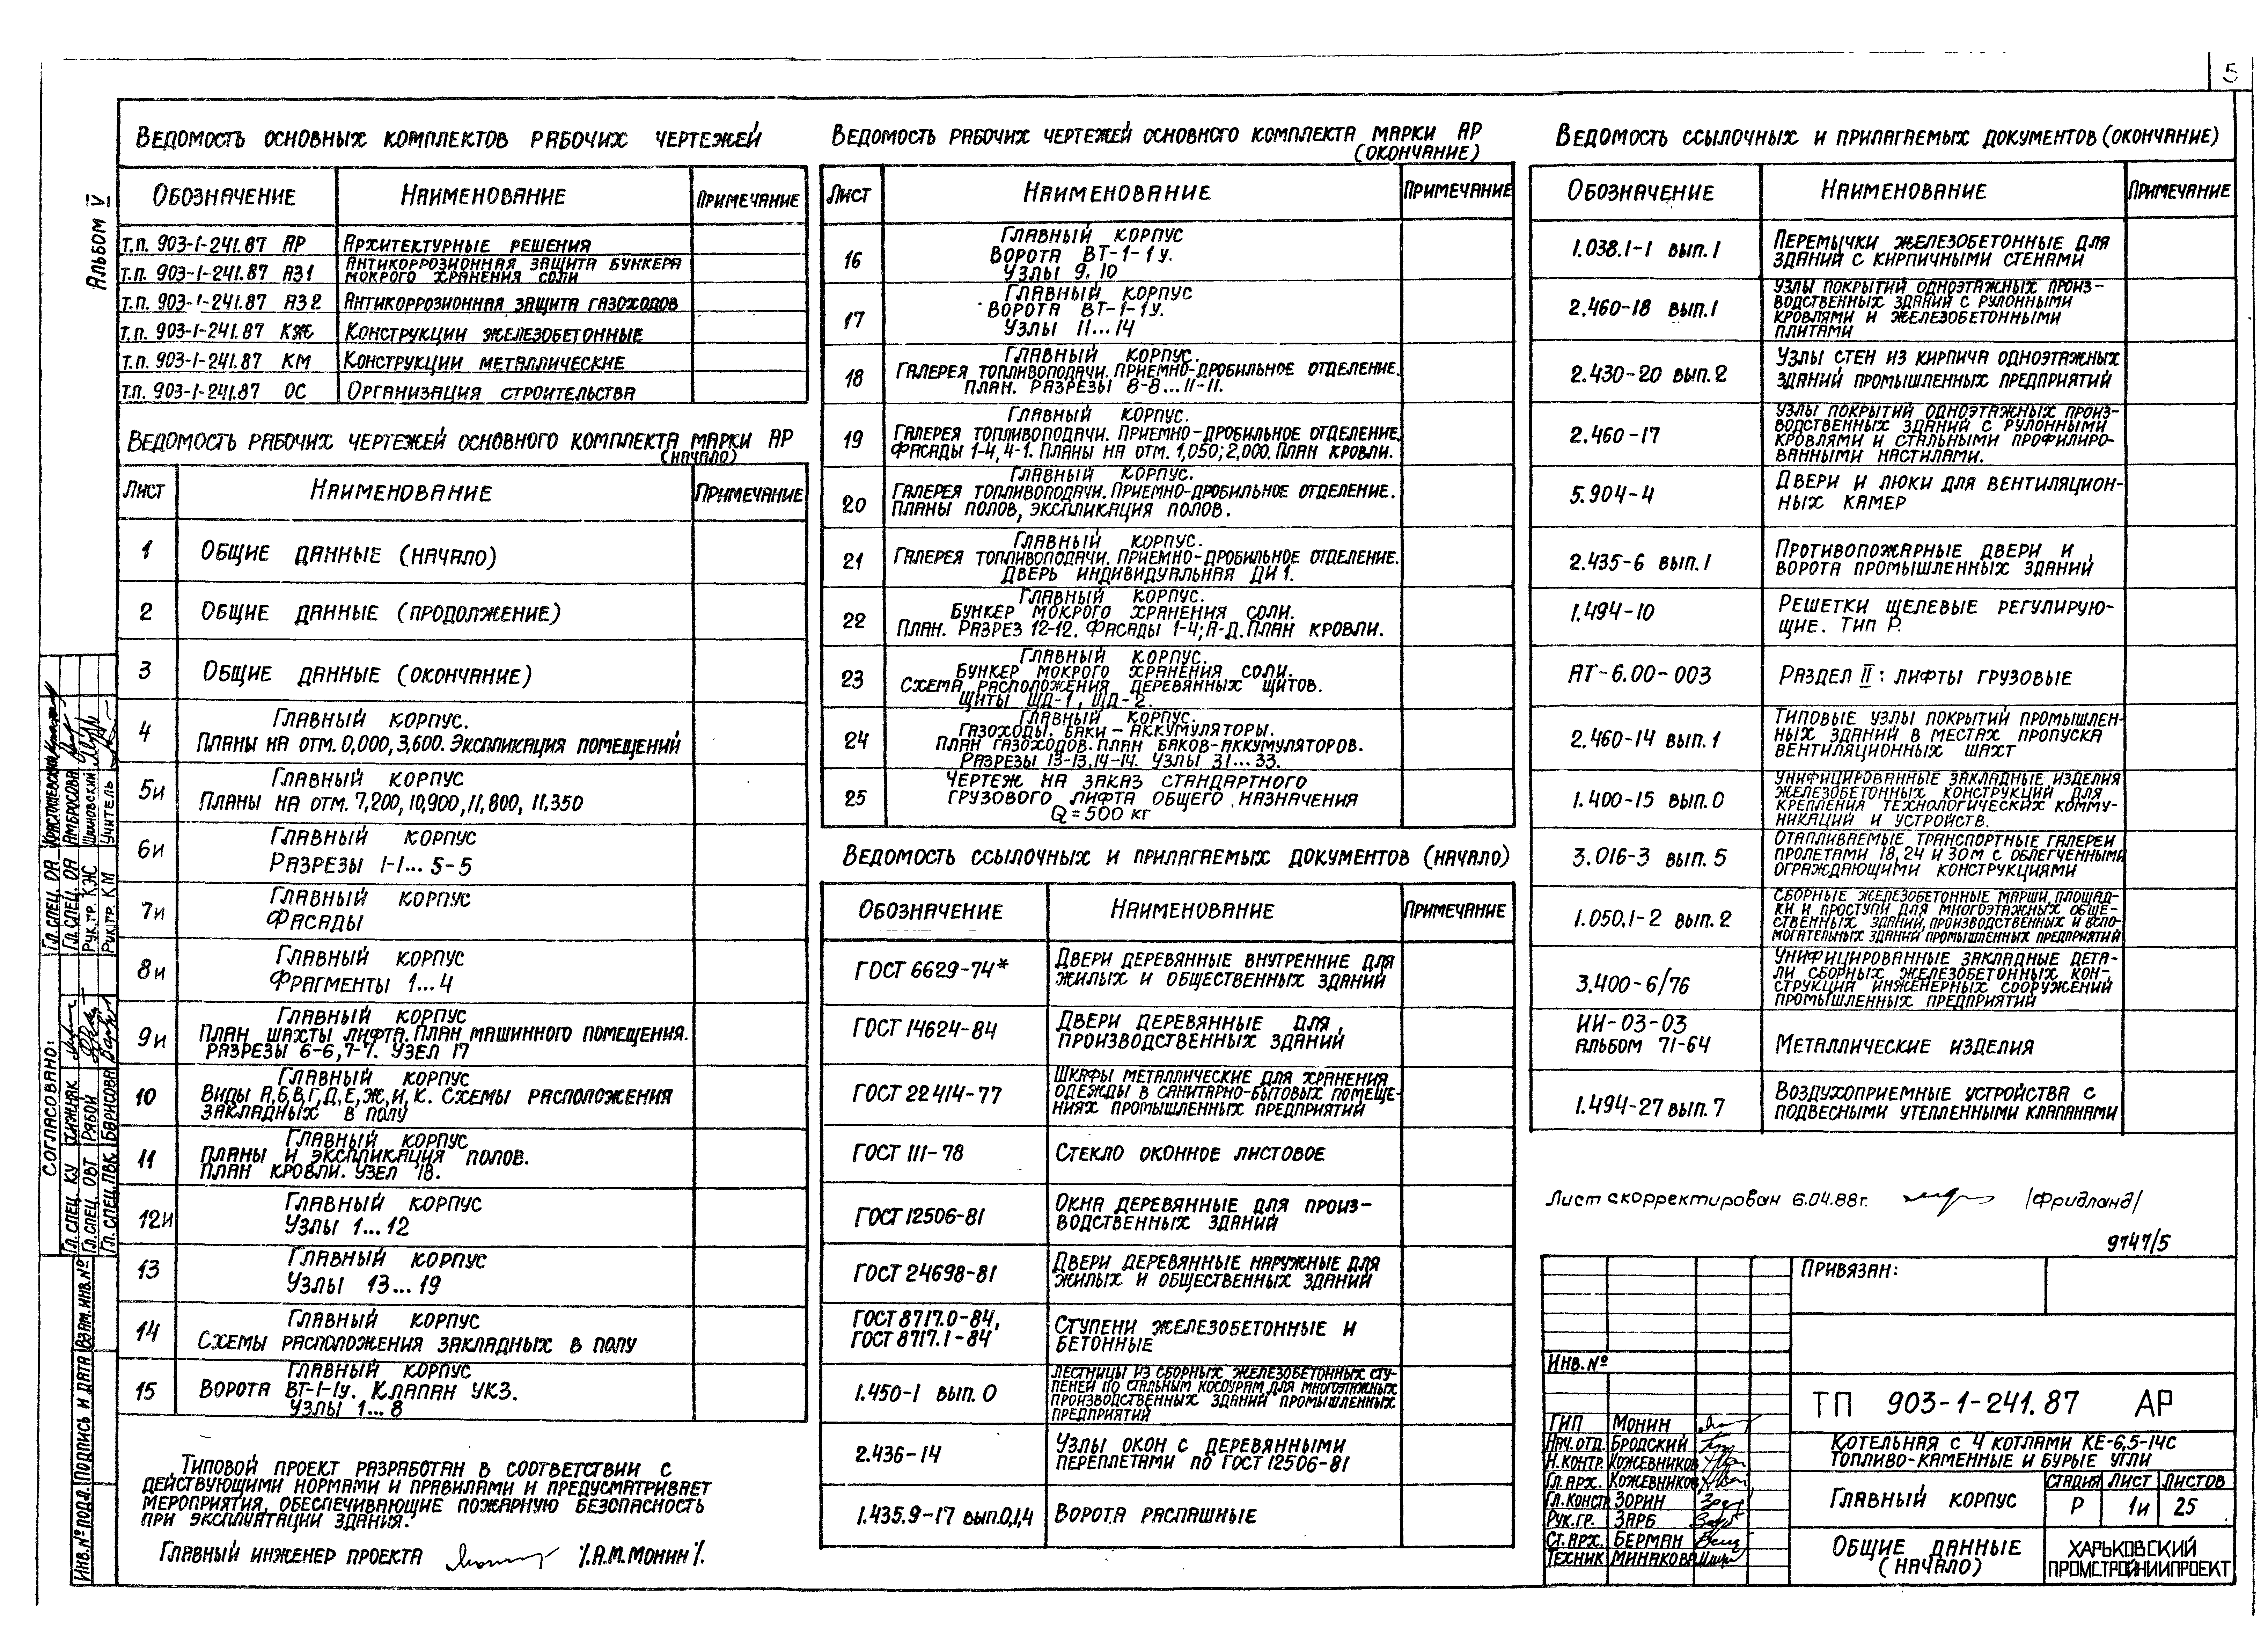 5
Альбом V
Ведомость основных комплектов рабочих чертежей
Обозначение Наименование Примечание
т.п. 903-1-241.87 АР Архитектурные решения
т.п. 903-1-241.87 АЗ1 Антикоррозионная защита бункера
мокрого хранения соли
т.п. 903-1-241.87 АЗ2 Антикоррозионная защита газоходов
т.п. 903-1-241.87 КЖ Конструкции железобетонные
т.п. 903-1-241.87 КМ Конструкции металлические
т.п. 903-1-241.87 ОС Организация строительства
Ведомость рабочих чертежей основного комплекта марки АР
(начало)
Лист Наименование Примечание
1 Общие данные (начало)
2 Общие данные (продолжение)
3 Общие данные (окончание)
4 Главный корпус.
Планы на отм. 0,000, 3,600. Экспликация помещений
5и Главный корпус
Планы на отм. 7,200, 10,900, 11,800, 11,350
6и Главный корпус
Разрезы 1-1... 5-5
7и Главный корпус
Фасады
8и Главный корпус
Фрагменты 1...4
9и Главный корпус
План шахты лифта. План машинного помещения.
Разрезы 6-6, 7-7. Узел 17
10 Главный корпус
Виды А, Б, В, Г, Д, Е, Ж, И, К. Схемы расположения
закладных в полу
11 Главный корпус
Планы и экспликация полов.
План кровли. Узел 18.
12и Главный корпус
Узлы 1...12
13 Главный корпус
Узлы 13...19
14 Главный корпус
Схемы расположения закладных в полу
15 Главный корпус
Ворота ВТ-1-1у. Клапан УКЗ.
Узлы 1...8
Типовой проект разработан в соответствии с
действующими нормами и правилами и предусматривает
мероприятия, обеспечивающие пожарную безопасность
при эксплуатации здания.
Главный инженер проекта /А.М. Монин/.
Ведомость рабочих чертежей основного комплекта марки АР
(окончание)
Лист Наименование Примечание
16 Главный корпус
Ворота ВТ-1-1у.
Узлы 9, 10
17 Главный корпус
Ворота ВТ-1-1у.
Узлы 11...14
18 Главный корпус.
Галерея топливоподачи. Приемно-дробильное отделение.
План. Разрезы 8-8...11-11.
19 Главный корпус.
Галерея топливоподачи. Приемно-дробильное отделение.
Фасады 1-4, 4-1. Планы на отм. 1,050; 2,000. План кровли.
20 Главный корпус.
Галерея топливоподачи. Приемно-дробильное отделение.
Планы полов, экспликация полов.
21 Главный корпус.
Галерея топливоподачи. Приемно-дробильное отделение.
Дверь индивидуальная ДИ1.
22 Главный корпус.
Бункер мокрого хранения соли.
План. Разрез 12-12. Фасады 1-4; А-Д. План кровли.
23 Главный корпус.
Бункер мокрого хранения соли.
Схема расположения деревянных щитов.
Щиты ЩД-1, ЩД-2.
24 Главный корпус.
Газоходы. Баки-аккумуляторы.
План газоходов. План баков-аккумуляторов.
Разрезы 13-13, 14-14. Узлы 31...33.
25 Чертеж на заказ стандартного
грузового лифта общего назначения
Q = 500 кг
Ведомость ссылочных и прилагаемых документов (начало)
Обозначение Наименование Примечание
ГОСТ 6629-74* Двери деревянные внутренние для
жилых и общественных зданий
ГОСТ 14624-84 Двери деревянные для
производственных зданий
ГОСТ 22414-77 Шкафы металлические для хранения
одежды в санитарно-бытовых помеще-
ниях промышленных предприятий
ГОСТ 111-78 Стекло оконное листовое
ГОСТ 12506-81 Окна деревянные для произ-
водственных зданий
ГОСТ 24698-81 Двери деревянные наружные для
жилых и общественных зданий
ГОСТ 8717.0-84,
ГОСТ 8717.1-84 Ступени железобетонные и
бетонные
1.450-1 вып. 0 Лестницы из сборных железобетонных сту-
пеней по стальным косоурам для многоэтажных
производственных зданий промышленных
предприятий
2.436-14 Узлы окон с деревянными
переплетами по ГОСТ 12506-81
1.435.9-17 вып.0,1,4 Ворота распашные
Ведомость ссылочных и прилагаемых документов (окончание)
Обозначение Наименование Примечание
1.038.1-1 вып. 1 Перемычки железобетонные для
зданий с кирпичными стенами
2.460-18 вып. 1 Узлы покрытий одноэтажных произ-
водственных зданий с рулонными
кровлями и железобетонными
плитами
2.430-20 вып. 2 Узлы стен из кирпича одноэтажных
зданий промышленных предприятий
2.460-17 Узлы покрытий одноэтажных произ-
водственных зданий с рулонными
кровлями и стальными профилиро-
ванными настилами.
5.904-4 Двери и люки для вентиляцион-
ных камер
2.435-6 вып. 1 Противопожарные двери и
ворота промышленных зданий
1.494-10 Решетки щелевые регулирую-
щие. Тип Р.
АТ-6.00-003 Раздел II: лифты грузовые
2.460-14 вып. 1 Типовые узлы покрытий промышлен-
ных зданий в местах пропуска
вентиляционных шахт
1.400-15 вып. 0 Унифицированные закладные изделия
железобетонных конструкций для
крепления технологических комму-
никаций и устройств.
3.016-3 вып. 5 Отапливаемые транспортные галереи
пролетами 18, 24 и 30м с облегченными
ограждающими конструкциями
1.050.1-2 вып. 2 Сборные железобетонные марши, площад-
ки и проступи для многоэтажных обще-
ственных зданий, производственных и вспо-
могательных зданий промышленных предприятий
3.400-6/76 Унифицированные закладные дета-
ли сборных железобетонных кон-
струкций инженерных сооружений
промышленных предприятий
ИИ-03-03
альбом 71-64 Металлические изделия
1.494-27 вып. 7 Воздухоприемные устройства с
подвесными утепленными клапанами
Лист скорректирован 6.04.88г. /Фридланд/
9747/5
Привязан:
Инв. №
ТП 903-1-241.87 АР
ГИП Монин
Нач. отд. Бродский
Н. контр. Кожевников
Гл. арх. Кожевников
Гл. конст. Зорин
Рук. гр. Зарб
Ст. арх. Берман
Техник Минакова
Котельная с 4 котлами КЕ-6,5-14С
Топливо-каменные и бурые угли
Главный корпус
Стадия Лист Листов
Р 1и 25
Общие данные
(начало)
Харьковский
Промстройниипроект
Согласовано:
Гл. спец. КУ Хижняк
Гл. спец. ОВТ Рябой
Гл. спец. ПВК
Гл. спец. ОА
Гл. спец. ОА Амбросова
Рук. гр. КЖ
Рук. гр. КМ Учитель
Инв. № подл. Подпись и дата Взам. инв. №